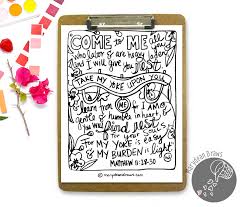 COME to ME all you
who labor & are heavy
laden and I will give you rest
TAKE MY YOKE UPON YOU
& learn from ME for I AM
gentle & humble in heart, &
you will find rest
for your souls
For MY YOKE is easy
& MY BURDEN is light
MATTHEW 11:28-30
marydeandraws.com
MaryDean Draws